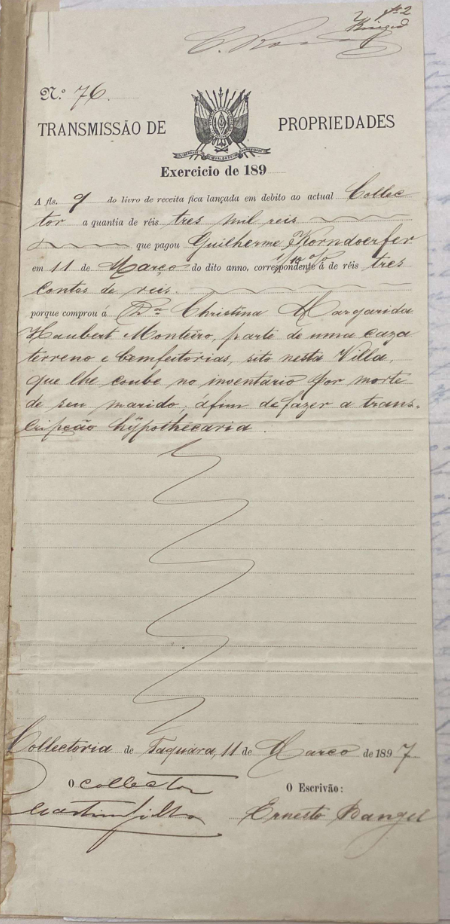 Nº 76.
TRANSMISSÃO DE PROPRIEDADES
Exercicio de 189
A fls. 9 do livro de receita fica lançada em debito ao actual Collec
tor a quantia de réis tres mil reis
que pagou Guilherme Korndoerfer
em 11 de Março do dito anno, correspondente á de réis tres
contos de reis
porque comprou á Dª Christina Margarida
Haubert Monteiro, parte de uma caza
terreno e bemfeitorias, sito nesta Villa,
que lhe coube no inventário por morte
de seu marido; afim de fazer a trans-
cripção hÿpothecaria.
Collectoria de Taquara, 11 de Março de 1897.
O Collector O Escrivão:
Ernesto Rangel